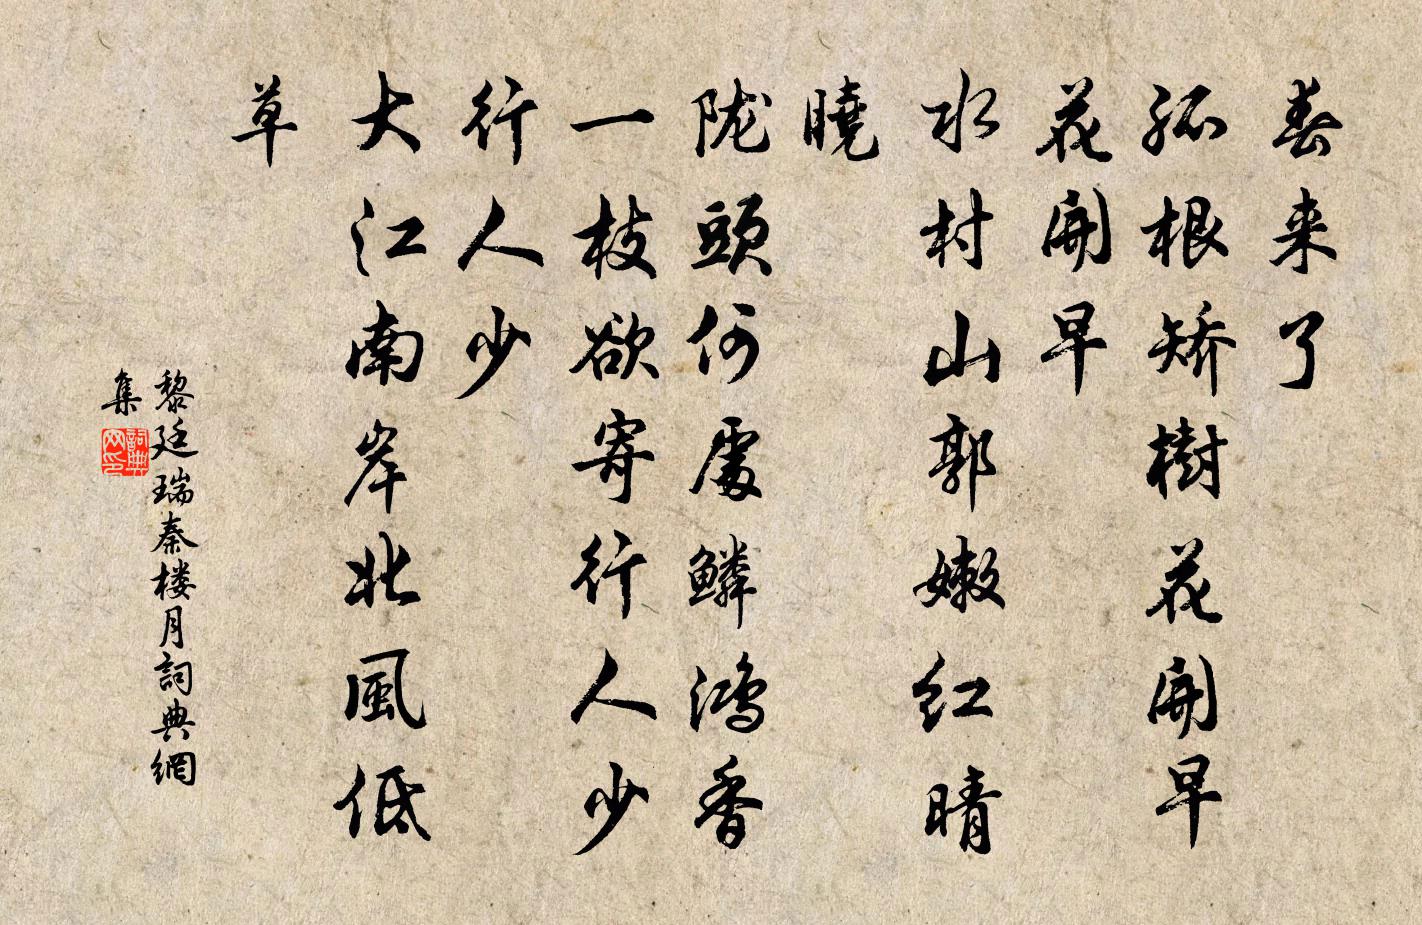 春来了
孤根矫樹花開早
花開早
水村山郭嫩红晴
曉
陇頭何處鳞鸿香
一枝欲寄行人少
行人少
大江南岸北風低
草
黎廷瑞秦楼月詞典網
集
詞典
网印